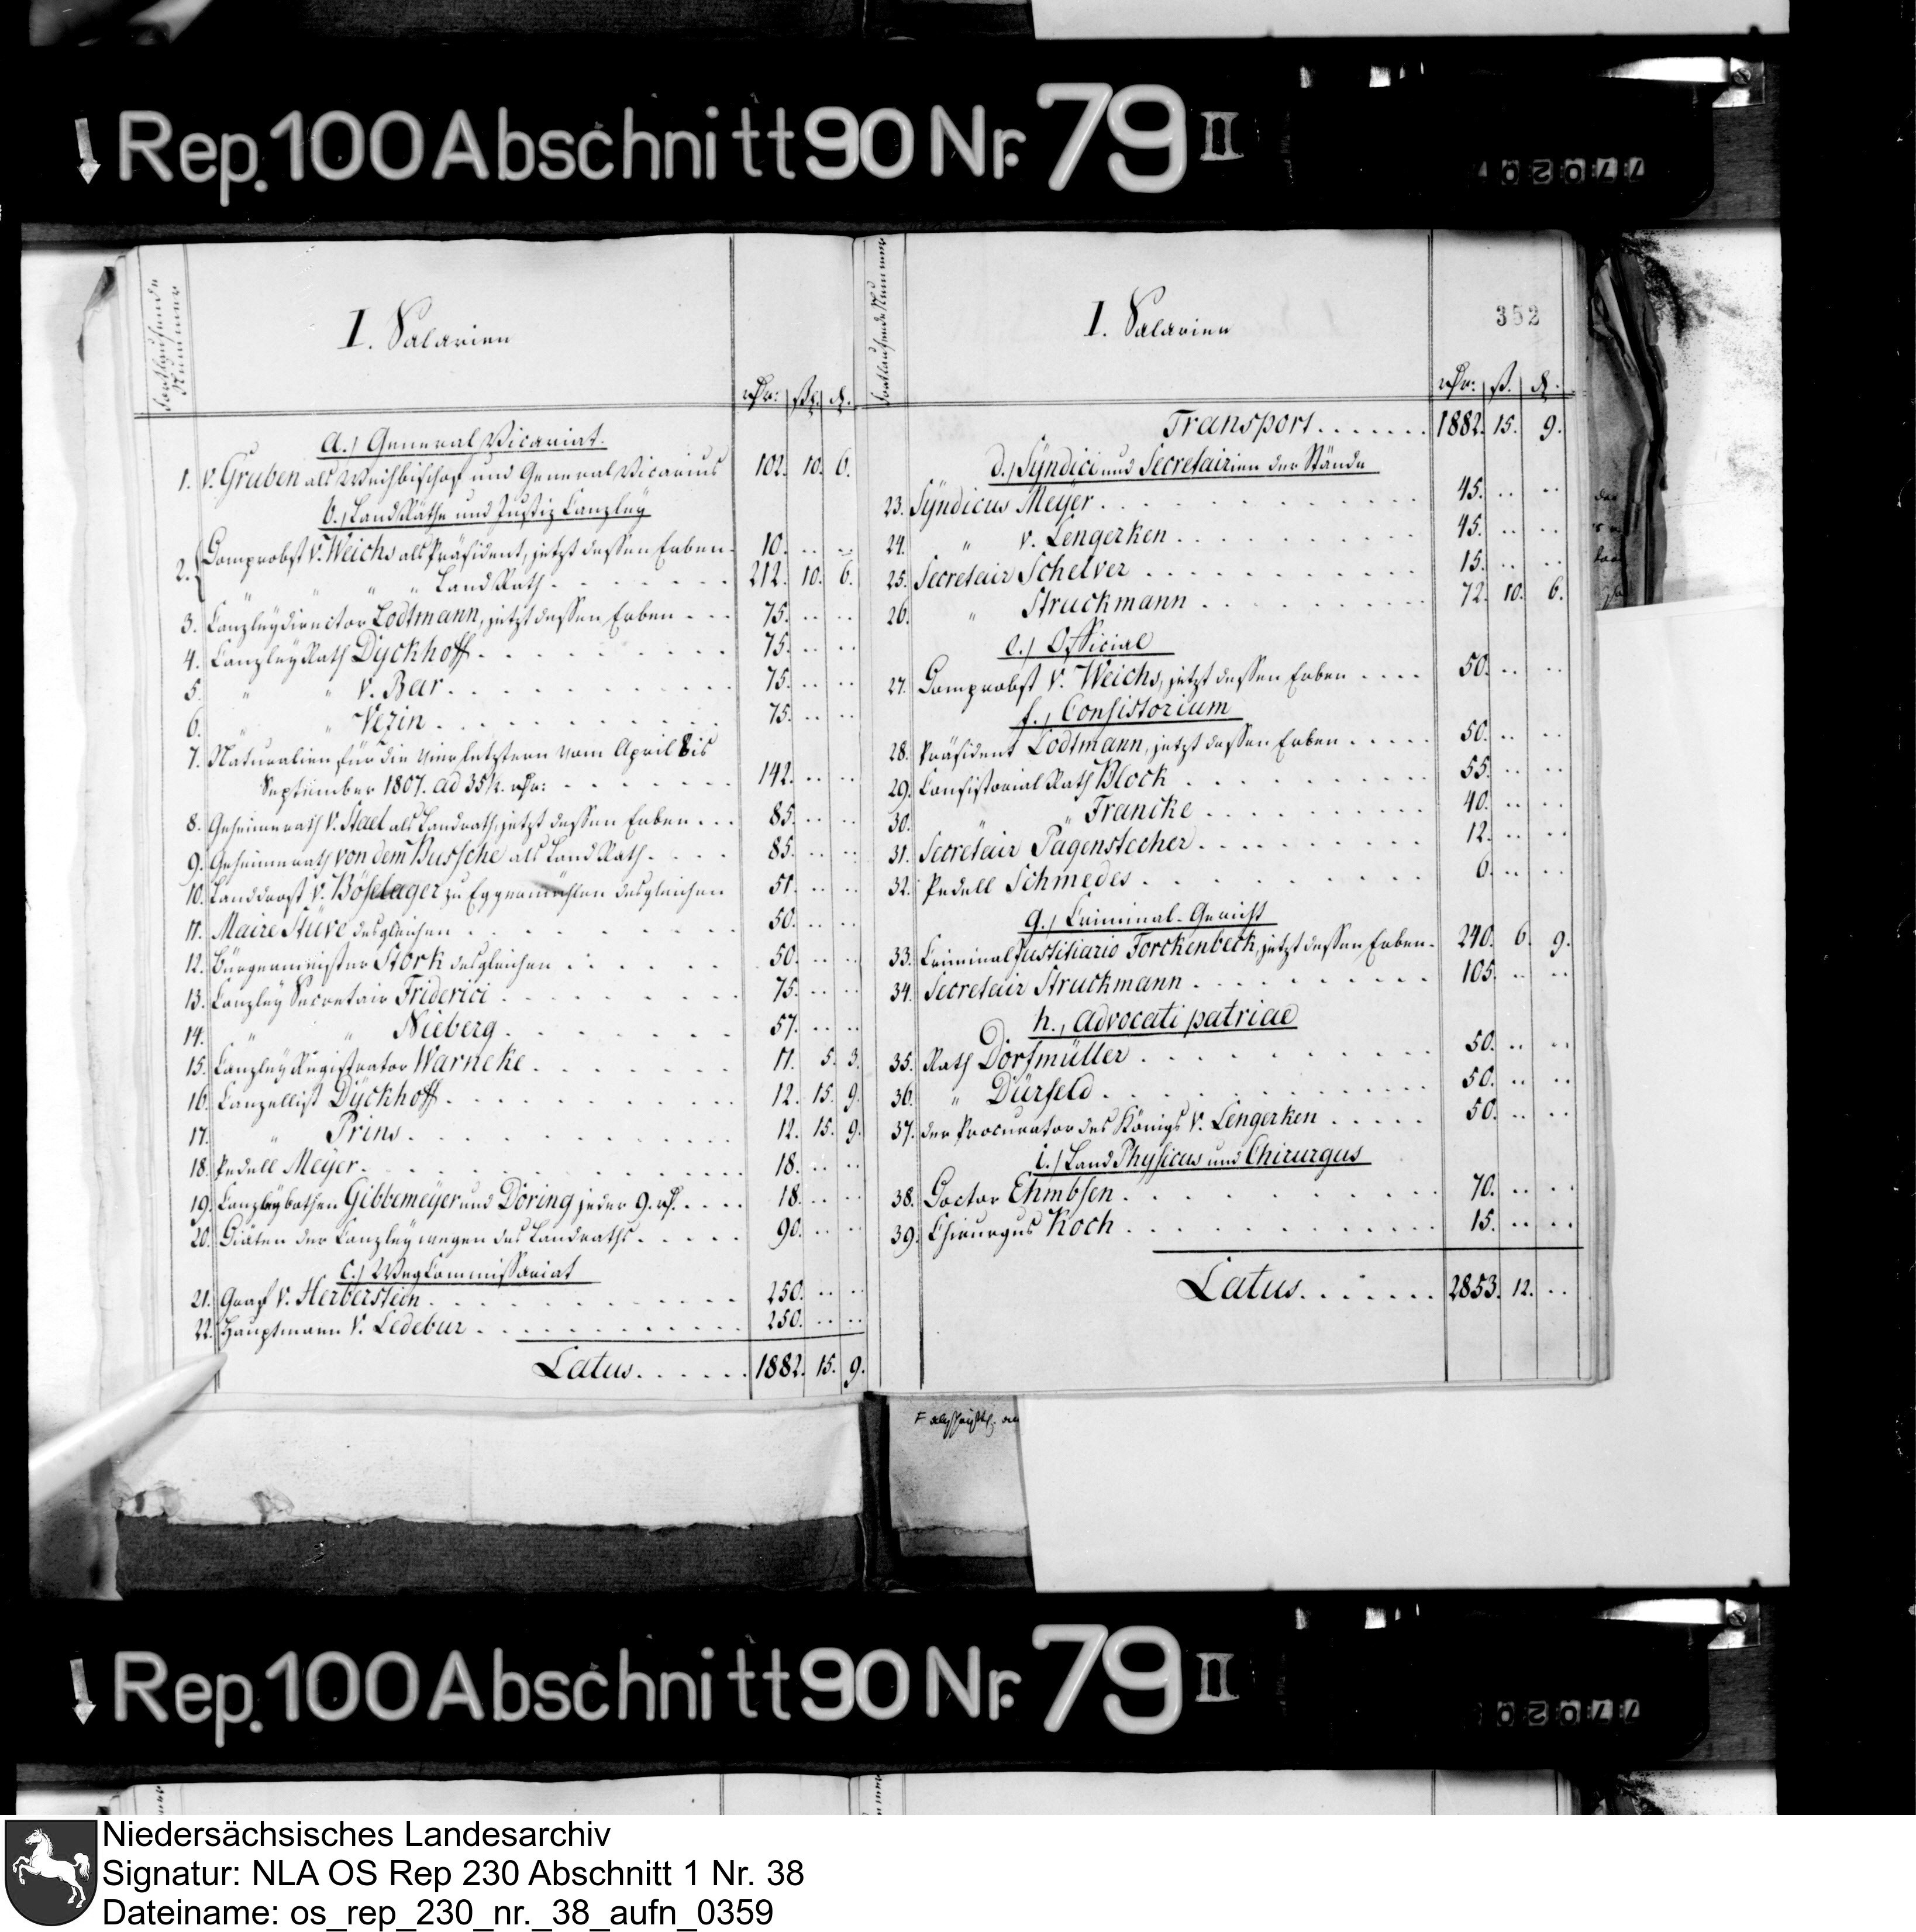 Rep. 100 Abschnitt 90 Nr. 79 II
77020
Fortlaufende
Nummer
I. Salarien
rthr: ß. d.
a.) General Vicariat.
1. v. Gruben als Weihbischof und General Vicarius 102. 10. 6.
b.) Land Räthe und Justiz Canzley
2. Domprobst v. Weichs als Präsident, jetzt dessen Erben. 10. .. ..
" " " Land Rath . . . . . . 212. 10. 6.
3. Canzleydirector Lodtmann, jetzt dessen Erben . . . 75. .. ..
4. Canzley Rath Dyckhoff . . . . . . . . 75. .. ..
5. " " v. Bar . . . . . . . . . 75. .. ..
6. " " Vezin . . . . . . . . . 75. .. ..
7. Naturalien für die vier letztern vom April bis
September 1807. ad 35½. rthr: . . . . . . . 142. .. ..
8. Geheimerath v. Stael als Landrath, jetzt dessen Erben . . . 85. .. ..
9. Geheimerath von dem Bussche als Land Rath . . . . 85. .. ..
10. Landdrost v. Böselager zu Eggermühlen desgleichen 51. .. ..
11. Maire Stüve desgleichen . . . . . . . . 50. .. ..
12. Bürgermeister Stork desgleichen . . . . . . 50. .. ..
13. Canzley Secretair Friderici . . . . . . . . 75. .. ..
14. " " Nieberg . . . . . . . 57. .. ..
15. Canzley Registrator Warneke . . . . . . . 11. 5. 3.
16. Canzellist Dyckhoff . . . . . . . . . . 12. 15. 9.
17. " Prins . . . . . . . . . . . 12. 15. 9.
18. Pedell Meyer . . . . . . . . . . . . 18. .. ..
19. Canzleybothen Gibbemeyer und Döring jeder 9. rth. . . . . 18. .. ..
20. Diäten der Canzley wegen des Landraths . . . . . 90. .. ..
c.) Weg Commissariat
21. Graf v. Herberstein . . . . . . . . . . . 250. .. ..
22. Hauptmann v. Ledebur . . . . . . . . . . 250. .. ..
Latus . . . . . . 1882. 15. 9.
Fortlaufende Nummer
I. Salarien
352
rthr: ß. d.
Transport . . . . . . . 1882. 15. 9.
d.) Syndici und Secretairien der Stände
23. Syndicus Meyer . . . . . . . . . . . 45. .. ..
24. " v. Lengerken . . . . . . . . . 45. .. ..
25. Secretair Schelver . . . . . . . . . . . 15. .. ..
26. " Struckmann . . . . . . . . . 72. 10. 6.
e.) Official
27. Domprobst v. Weichs, jetzt dessen Erben . . . . 50. .. ..
f.) Consistorium
28. Präsident Lodtmann, jetzt dessen Erben . . . . . 50. .. ..
29. Consistorial Rath Block . . . . . . . . . 55. .. ..
30. " " Francke . . . . . . . . . 40. .. ..
31. Secretair Pagenstecher . . . . . . . . . . 12. .. ..
32. Pedell Schmedes . . . . . . . . . . 6. .. ..
g.) Criminal-Gericht
33. Criminal Justitiario Forckenbeck, jetzt dessen Erben. 240. 6. 9.
34. Secretair Struckmann . . . . . . . . . . 105. .. ..
h.) Advocati patriae
35. Rath Dorfmüller . . . . . . . . . . . 50. .. ..
36. " Dürfeld . . . . . . . . . . . . 50. .. ..
37. der Procurator des Königs v. Lengerken . . . . . 50. .. ..
i.) Land Physicus und Chirurgus
38. Doctor Ehmbsen . . . . . . . . . . . 70. .. ..
39. Chirurgus Koch . . . . . . . . . . . 15. .. ..
Latus . . . . . . . 2853. 12. ..
Rep. 100 Abschnitt 90 Nr. 79 II
77020
Niedersächsisches Landesarchiv
Signatur: NLA OS Rep 230 Abschnitt 1 Nr. 38
Dateiname: os_rep_230_nr._38_aufn_0359